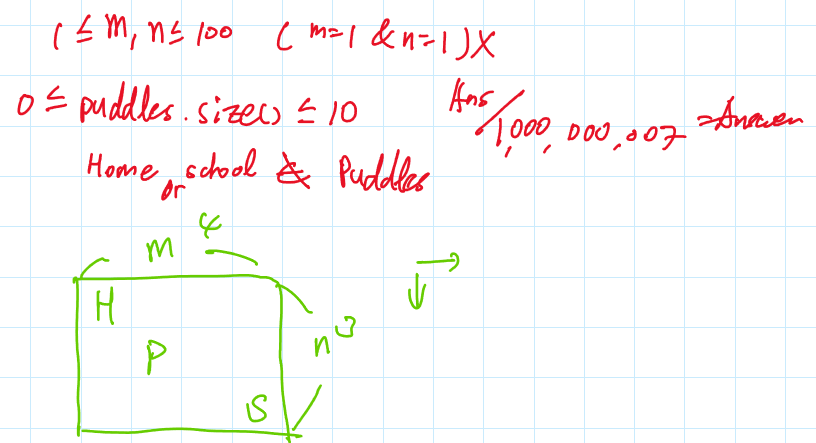 1 ≤ m, n ≤ 100 ( m=1 & n=1 ) X
0 ≤ puddles.size() ≤ 10
Ans/1,000,000,007 = Answer
Home or school & Puddles
m 4
H
P
n 3
S